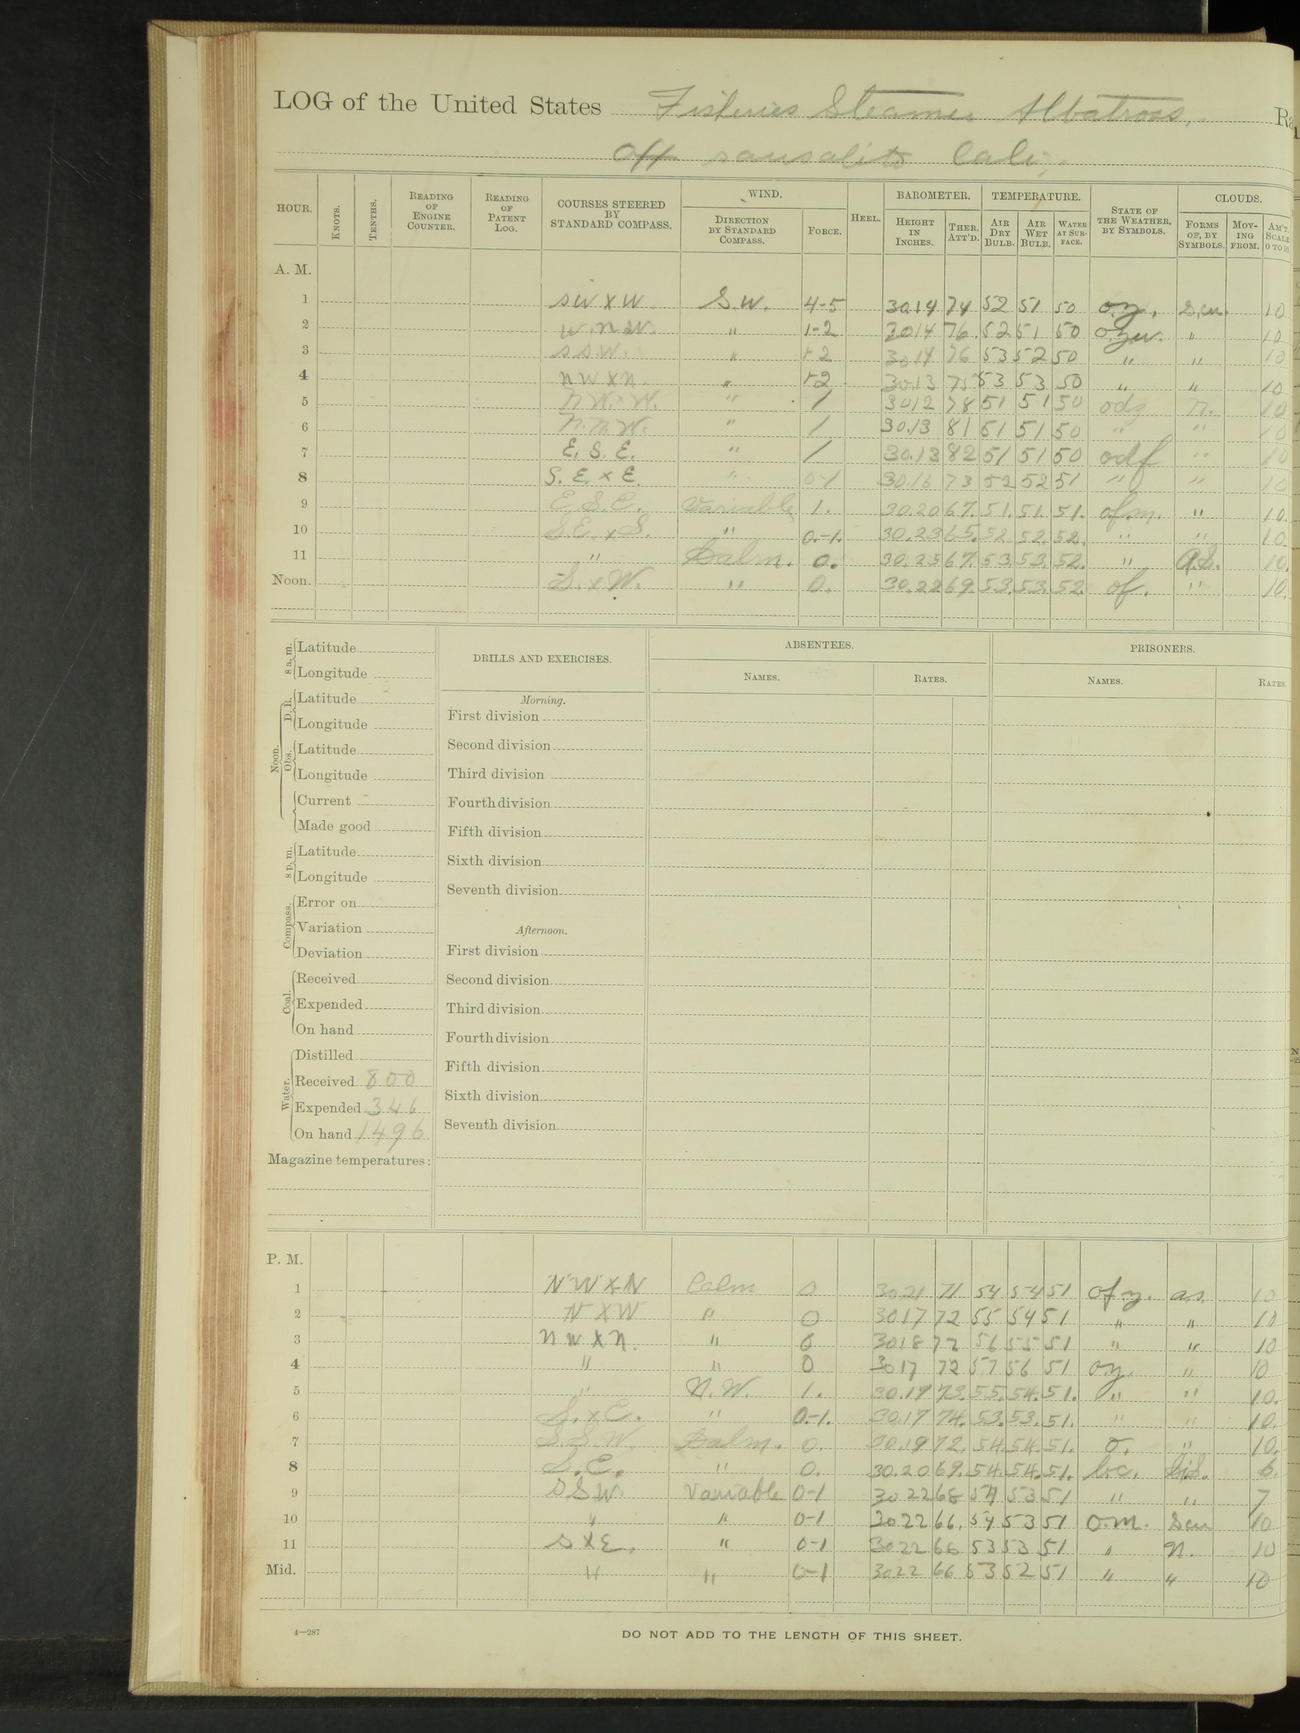 LOG of the United States Fisheries Steamer Albatross, Ra
Off Sausalito Cali,
HOUR. KNOTS. TENTHS. READING OF ENGINE COUNTER. READING OF PATENT LOG. COURSES STEERED BY STANDARD COMPASS. WIND. DIRECTION BY STANDARD COMPASS. FORCE. HEEL. BAROMETER. HEIGHT IN INCHES. THER. ATT'D. TEMPERATURE. AIR DRY BULB. AIR WET BULB. WATER AT SURFACE. STATE OF THE WEATHER, BY SYMBOLS. CLOUDS. FORMS OF, BY SYMBOLS. MOVING FROM. AM'T, SCALE 0 TO 10
A. M.
1 SW x W S.W. 4-5 30.14 74 52 51 50 o.z. S.cu. 10
2 W.N.W. " 1-2 30.14 76 52 51 50 o.z.w. " 10
3 S.S.W. " 1-2 30.14 76 53 52 50 " " 10
4 NW x N. " 1-2 30.13 75 53 53 50 " " 10
5 N.W. x W. " 1 30.12 78 51 51 50 odz n. 10
6 N.N.W. " 1 30.13 81 51 51 50 " " 10
7 E. S. E. " 1 30.13 82 51 51 50 odf " 10
8 S. E. x E. " 0-1 30.16 73 52 52 51 " " 10
9 E.S.E. Variable 1. 30.20 67. 51. 51. 51. ofm. " 10.
10 S.E. x S. " 0.-1. 30.23 65. 52 52. 52. " " 10.
11 " Calm. 0. 30.25 67. 53. 53. 52. " A.S. 10.
Noon. S. x W. " 0. 30.22 69. 53. 53. 52. of. " 10.
8 a. m. Latitude
Longitude
Noon. D. R. Latitude
Longitude
Obs. Latitude
Longitude
Current
Made good
8 p. m. Latitude
Longitude
Compass. Error on
Variation
Deviation
Coal. Received
Expended
On hand
Water. Distilled
Received 800
Expended 346
On hand 1496
Magazine temperatures:
DRILLS AND EXERCISES.
Morning.
First division
Second division
Third division
Fourth division
Fifth division
Sixth division
Seventh division
Afternoon.
First division
Second division
Third division
Fourth division
Fifth division
Sixth division
Seventh division
ABSENTEES.
NAMES. RATES.
PRISONERS.
NAMES. RATES.
P. M.
1 NW x N Calm 0 30.21 71 54 54 51 ofz. as. 10
2 N x W " 0 30.17 72 55 54 51 " " 10
3 NW x N. " 0 30.18 72 56 55 51 " " 10
4 " " 0 30.17 72 57 56 51 oz. " 10
5 " N.W. 1. 30.17 73. 55. 54. 51. " " 10.
6 S. x E. " 0.-1. 30.17 74. 53. 53. 51. " " 10.
7 S.S.W. Calm. 0. 30.19 72. 54. 54. 51. o. " 10.
8 S.E. " 0. 30.20 69. 54. 54. 51. b.c. Ci.S. 6.
9 SSW. Variable 0-1 30 22 68 54 53 51 " " 7
10 " " 0-1 30 22 66. 54 53 51 o.m. Scu 10
11 S x E. " 0-1 30 22 66 53 53 51 " N. 10
Mid. " " 0-1 30 22 66 53 52 51 " " 10
4—287
DO NOT ADD TO THE LENGTH OF THIS SHEET.